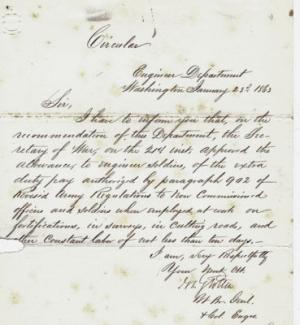 Circular
Engineer Department
Washington January 23d. 1863
Sir,
I have to inform you that, on the
recommendation of this Department, the Sec-
retary of War, on the 21st inst. approved the
allowance, to engineer soldiers, of the extra
duty pay authorized by paragraph 902 of
Revised Army Regulations to Non Commissioned
officers and Soldiers when employed at work on
fortifications, in surveys, in cutting roads, and
other Constant labor of not less than ten days.—
I am, Very Respectfully
Your Most Ob.
Totten
Bt Br. Genl.
& Col. Engrs